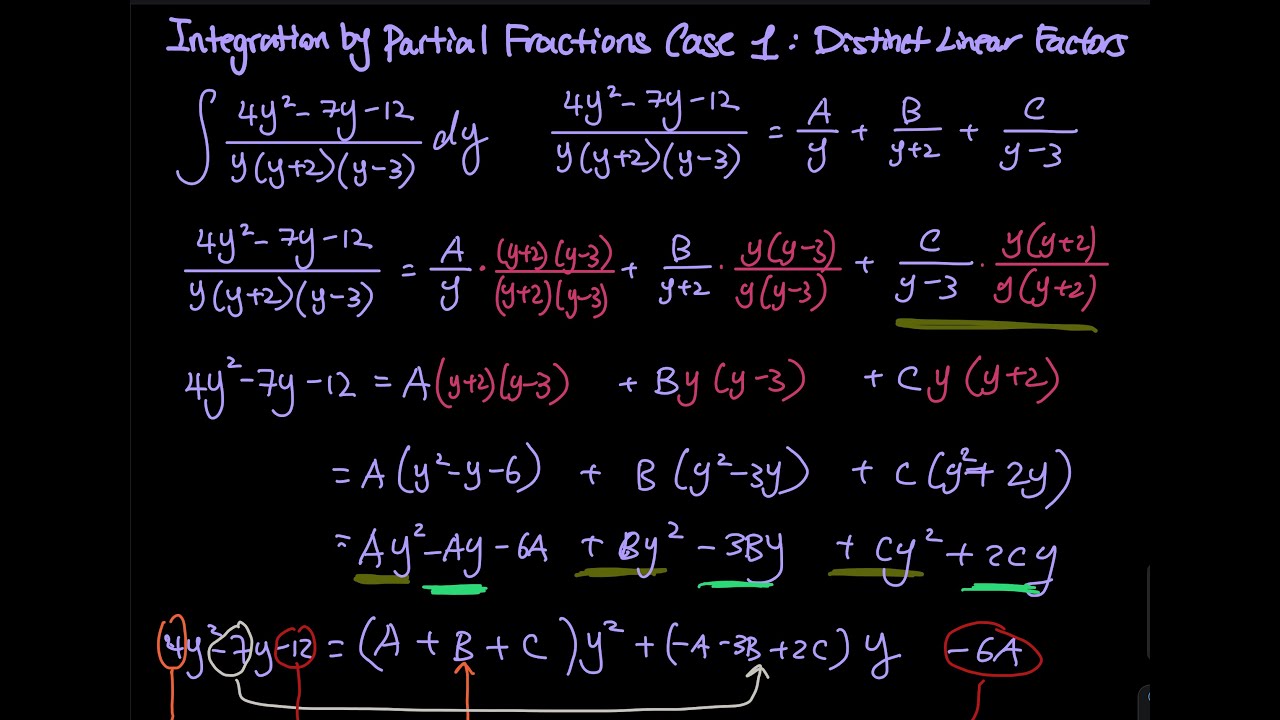 Integration by Partial Fractions Case 1: Distinct Linear Factors
∫ (4y² - 7y - 12)/(y(y+2)(y-3)) dy    (4y² - 7y - 12)/(y(y+2)(y-3)) = A/y + B/(y+2) + C/(y-3)
(4y² - 7y - 12)/(y(y+2)(y-3)) = A/y · ((y+2)(y-3))/((y+2)(y-3)) + B/(y+2) · (y(y-3))/(y(y-3)) + C/(y-3) · (y(y+2))/(y(y+2))
4y² - 7y - 12 = A(y+2)(y-3) + By(y-3) + Cy(y+2)
= A(y² - y - 6) + B(y² - 3y) + C(y² + 2y)
= Ay² - Ay - 6A + By² - 3By + Cy² + 2Cy
4y² - 7y - 12 = (A + B + C)y² + (-A - 3B + 2C)y - 6A